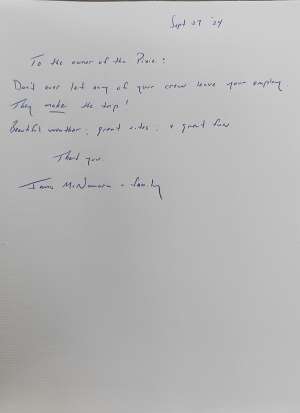 Sept 27 '24
To the owner of the Pixie:
Don't ever let any of your crew leave your employ
They make the trip!
Beautiful weather; great sites; & great fun
Thank you
McNamara & family